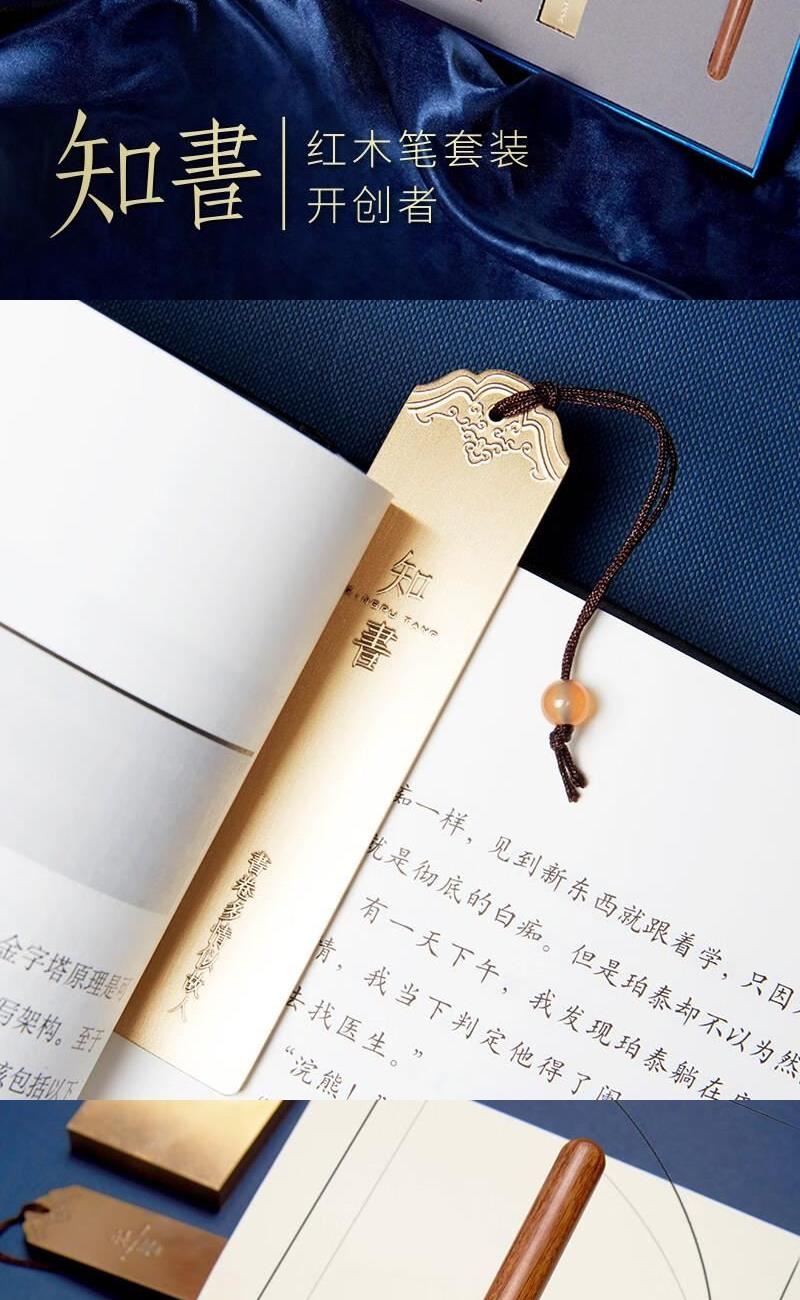 知書
红木笔套装
开创者
知
書
書卷多情似故人
金字塔原理是可
写架构。至于
包括以下
一样，见到新东西就跟着学，只因
就是彻底的白痴。但是珀泰却不以为然
有一天下午，我发现珀泰躺在
情，我当下判定他得了
去找医生。”
“浣熊！